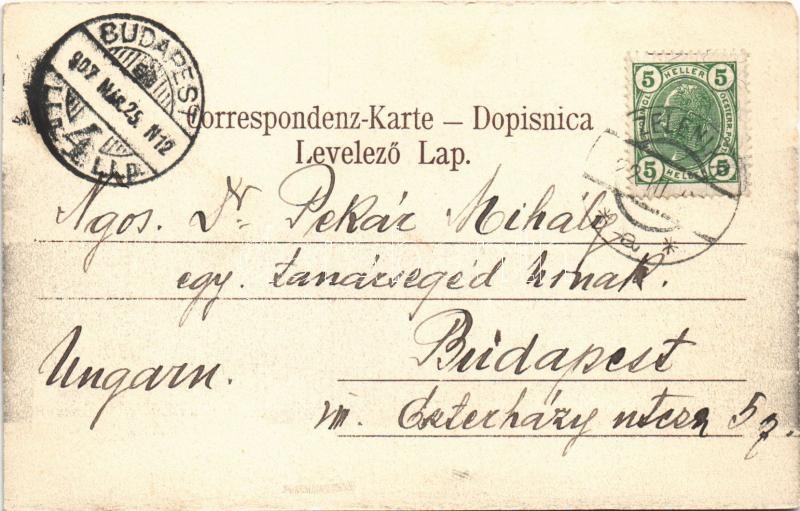 BUDAPEST
907 MÁR. 25. N12
4
Correspondenz-Karte – Dopisnica
Levelező Lap.
5 HELLER 5
5 HELLER 5
Ngos. Dr. Pekár Mihály
egy. tanársegéd úrnak.
Ungarn.
Budapest
Eszterházy utcza 5